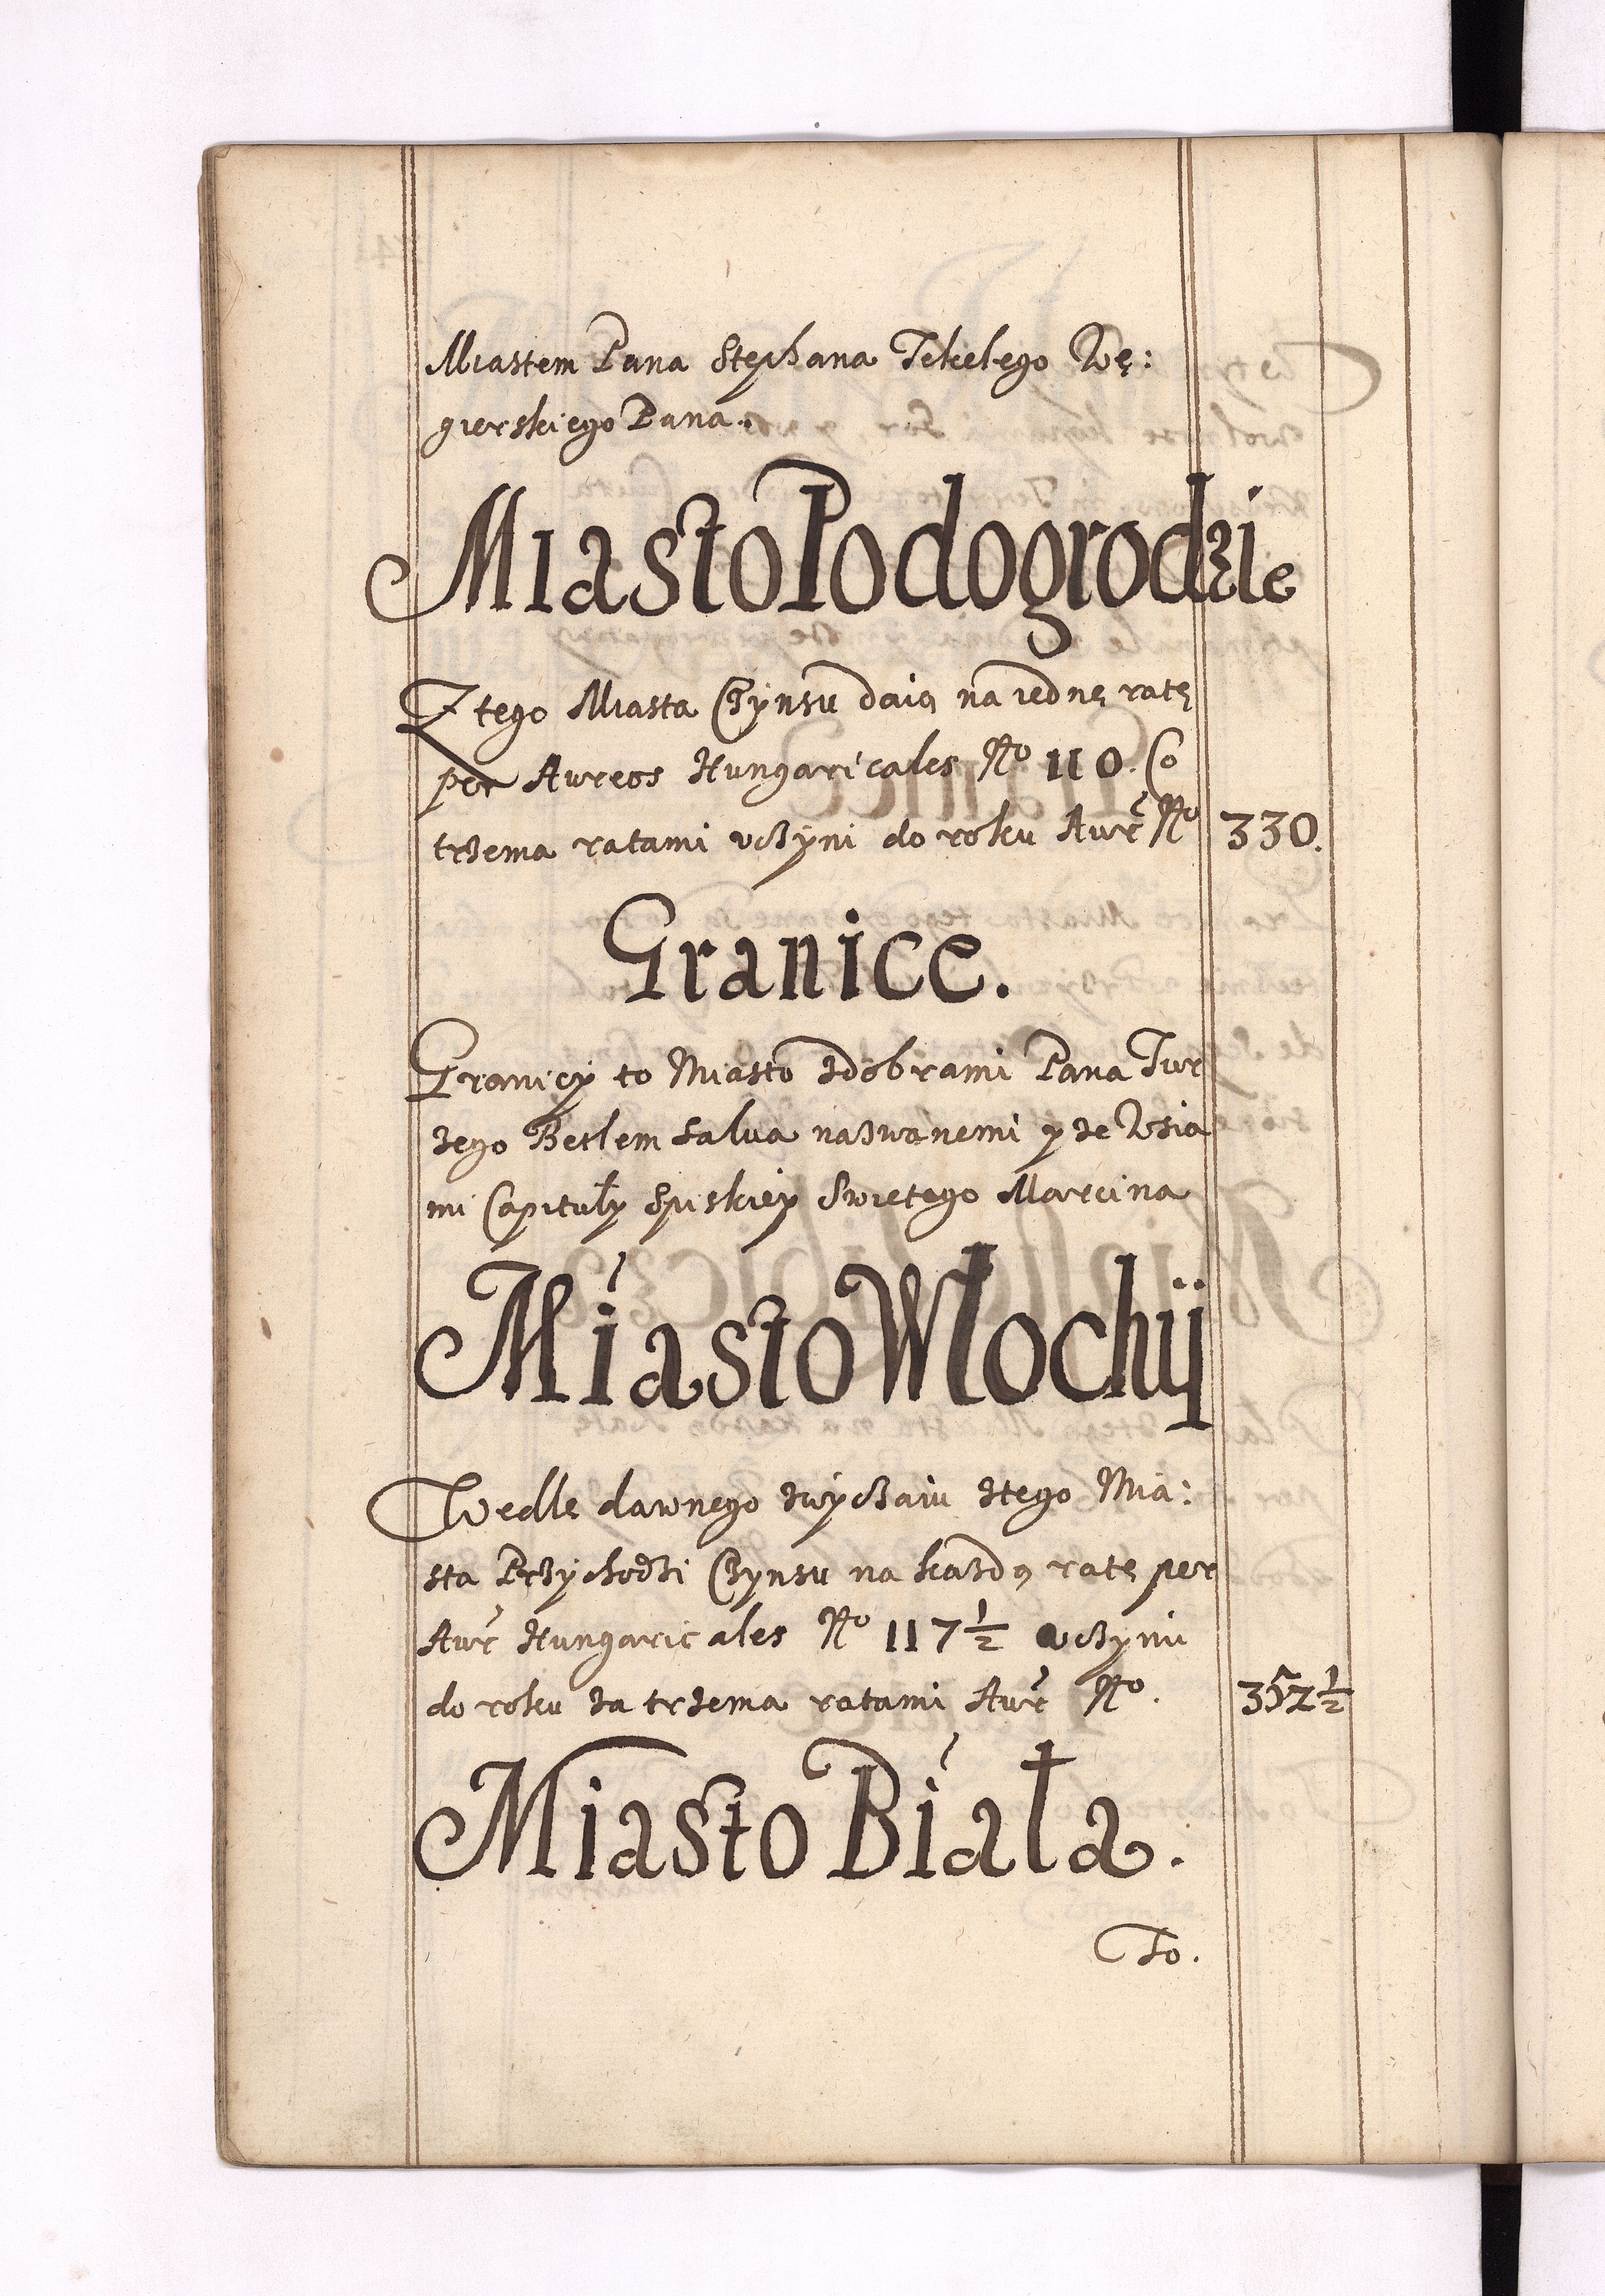 Miastem Pana Stephana Tekelego Wę:
gierskiego Pana.
Miasto Podogrodzie
Z tego Miasta Czynsu daią na iednę ratę
per Aureos Hungaricales No 110. Co
trzema ratami vczyni do roku Aur No 330.
Granice.
Graniczy to Miasto z dobrami Pana Tur
zego Betlem Falua nazwanemi y ze Wsia
mi Capituły Spiskiey Swietego Marcina
Miasto Włochy
Wedle dawnego zwyczaiu z tego Mia:
sta Przychodzi Czynsu na każdą ratę per
Aur Hungaricales No 117 1/2 vczyni
do roku za trzema ratami Aur No. 352 1/2
Miasto Biała.
To.